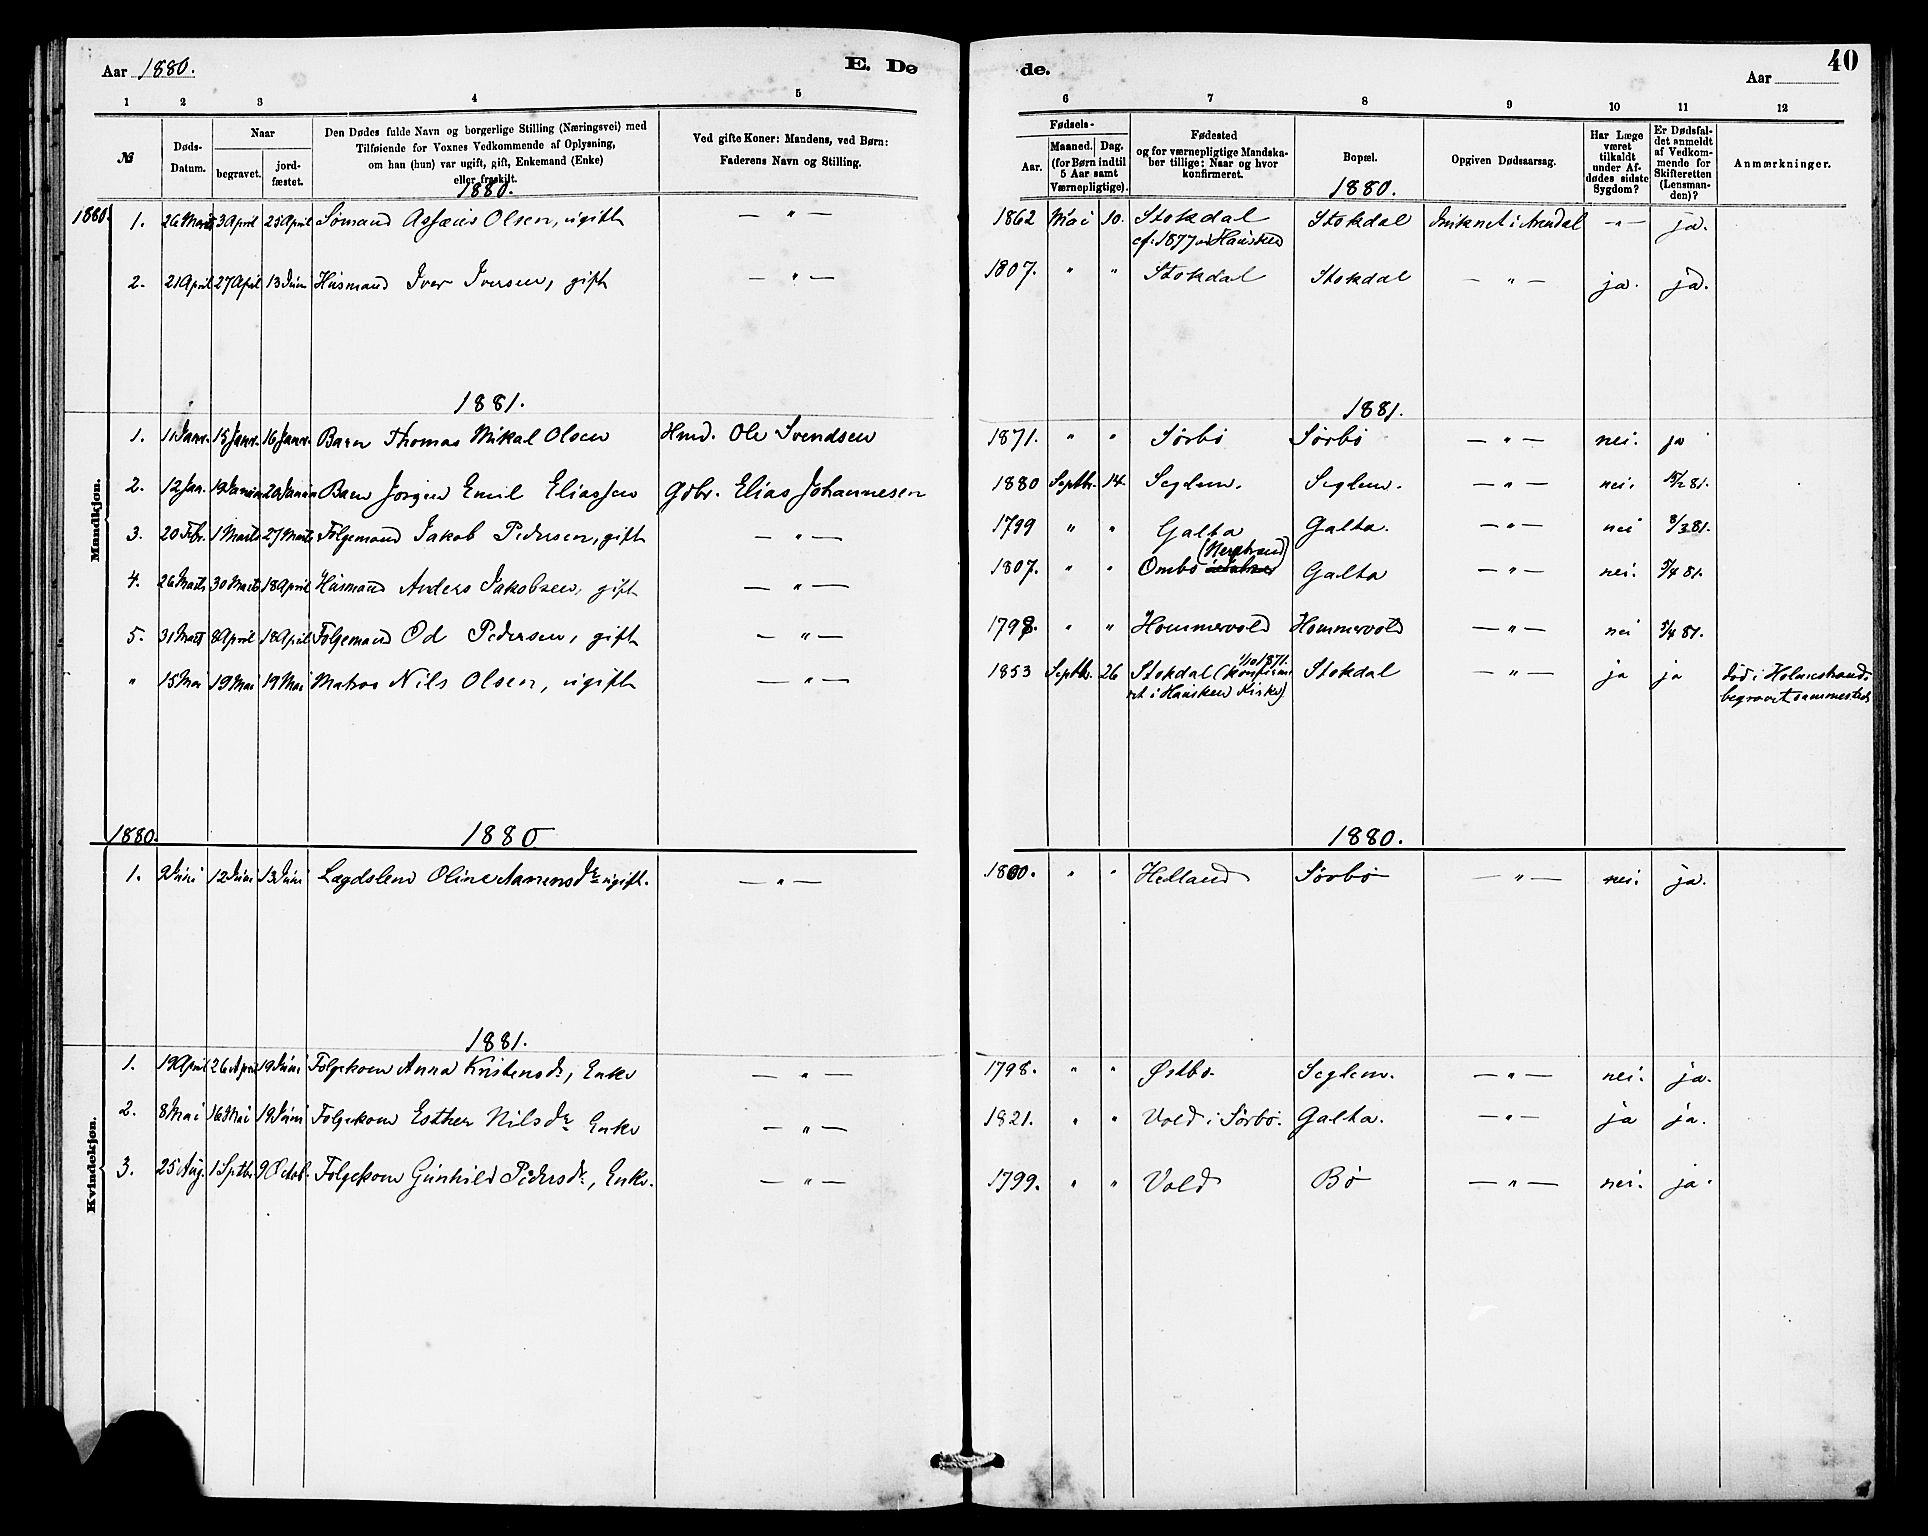 Aar 1880. E. Dø de. Aar 40
1 2 3 4 5 6 7 8 9 10 11 12
№
Døds-Datum.
Naar
begravet.
jordfæstet.
Den Dødes fulde Navn og borgerlige Stilling (Næringsvei) med
Tilføiende for Voxnes Vedkommende af Oplysning,
om han (hun) var ugift, gift, Enkemand (Enke)
eller fraskilt.
Ved gifte Koner: Mandens, ved Børn:
Faderens Navn og Stilling.
Fødsels-
Aar.
Maaned. Dag.
(for Børn indtil
5 Aar samt
Værnepligtige).
Fødested
og for værnepligtige Mandskaber tillige: Naar og hvor
konfirmeret.
Bopæl.
Opgiven Dødsaarsag.
Har Læge
været
tilkaldt
under Afdødes sidste
Sygdom?
Er Dødsfaldet anmeldt
af Vedkommende for
Skifteretten
(Lensmanden)?
Anmærkninger.
Mandkjøn.
1880. 1880. 1880.
1. 26 Marts 3 April 25 April Sømand Assæus Olsen, ugift — " — 1862 Mai 10. Stokdal Stokdal Druknet i Arendal — " — ja.
cf. 1877 i Hausken
2. 21 April 27 April 13 Juni Husmand Iver Iversen, gift — " — 1807. " " Stokdal Stokdal — " — ja. ja.
1881. 1881.
1. 11 Janr. 15 Janr. 16 Janr. Barn Thomas Mikal Olsen Hmd. Ole Svendsen 1871. " " Sørbø Sørbø — " — nei. ja
2. 12 Jan. 19 Januar 20 Januar Barn Jørgen Emil Eliassen Gdbr. Elias Johannesen 1880 Septbr. 14. Seglem. Seglem. — " — nei. 15/2 81.
3. 20 Febr. 1 Marts 27 Marts Følgemand Jakob Pedersen, gift — " — 1799 " " Galta Galta. — " — nei 3/3 81.
(Nerstrand)
4. 26 Marts 30 Marts 18 April Husmand Anders Jakobsen, gift — " — 1807. " " Ombo Galta — " — nei. 5/4 81.
5. 31 Mart 8 April 18 April Følgemand Od Pedersen, gift — " — 1798. " " Hommervold Hommervold — " — nei 5/4 81.
1/10 1871.
" 15 Mai 19 Mai 19 Mai Matros Nils Olsen, ugift — " — 1853 Septbr. 26 Stokdal (konfirme Stokdal — " — ja ja død i Holmestrand,
ret i Hausken Kirke) begravet sammesteds
1880. 1880 1880.
Kvindekjøn.
1. 9 Juni 12 Juni 13 Juni Lægdslem Oline Aanensdr ugift. — " — 1800. " " Helland Sørbø — " — nei. ja.
1881.
1. 19 April 26 April 19 Juni Følgekone Anna Kristensdr, Enke — " — 1798. " " Østbø. Seglem. — " — nei. ja.
2. 8 Mai 16 Mai 19 Juni Følgekone Esther Nilsdr Enke — " — 1821. " " Vold i Sørbø. Galta. — " — ja ja.
3. 25 Aug. 1 Septbr 9 Octob. Følgekone Gunhild Pedersdr, Enke. — " — 1799. " " Vold Bø — " — nei. ja.